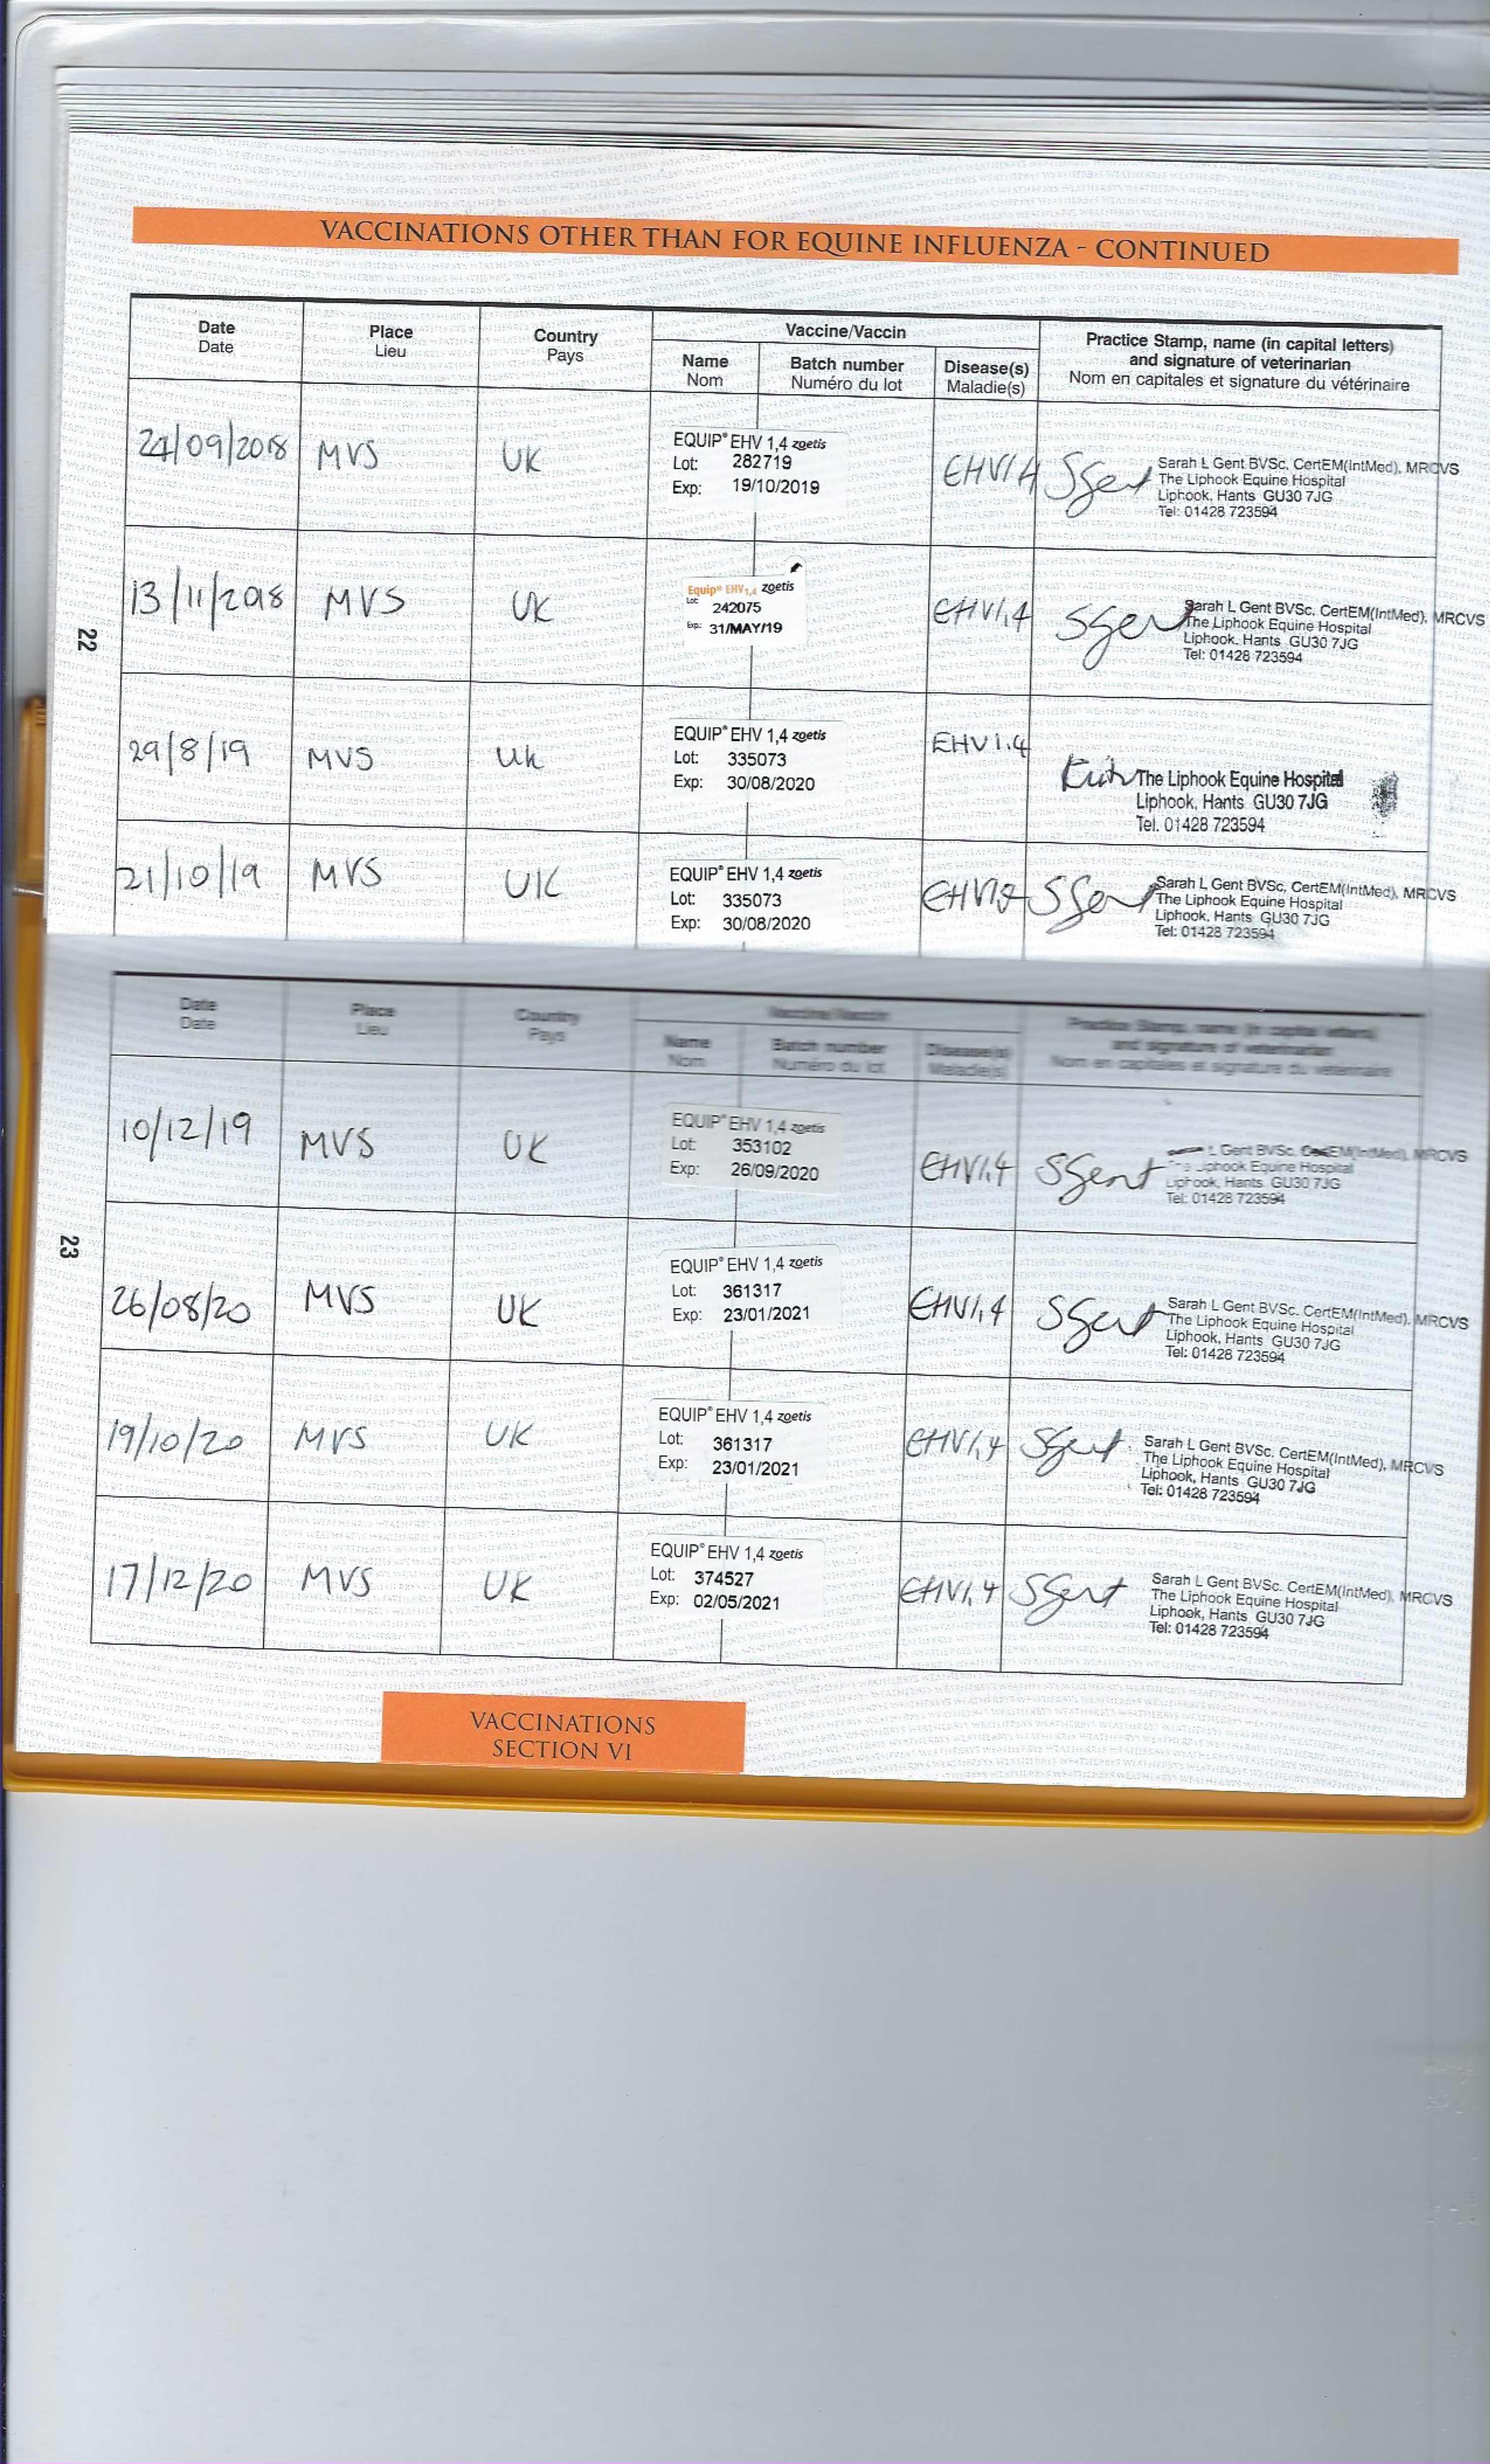 VACCINATIONS OTHER THAN FOR EQUINE INFLUENZA - CONTINUED
Date
Date
Place
Lieu
Country
Pays
Vaccine/Vaccin
Name
Nom
Batch number
Numéro du lot
Disease(s)
Maladie(s)
Practice Stamp, name (in capital letters)
and signature of veterinarian
Nom en capitales et signature du vétérinaire
24/09/2018 MVS UK
EQUIP® EHV 1,4 zoetis
Lot: 282719
Exp: 19/10/2019
EHV1,4 SGent
Sarah L Gent BVSc, CertEM(IntMed), MRCVS
The Liphook Equine Hospital
Liphook, Hants GU30 7JG
Tel: 01428 723594
13/11/2018 MVS UK
Equip® EHV1,4 zoetis
Lot: 242075
Exp: 31/MAY/19
EHV1,4 SGent
Sarah L Gent BVSc, CertEM(IntMed), MRCVS
The Liphook Equine Hospital
Liphook, Hants GU30 7JG
Tel: 01428 723594
22
29/8/19 MVS UK
EQUIP® EHV 1,4 zoetis
Lot: 335073
Exp: 30/08/2020
EHV1.4
The Liphook Equine Hospital
Liphook, Hants GU30 7JG
Tel. 01428 723594
21/10/19 MVS UK
EQUIP® EHV 1,4 zoetis
Lot: 335073
Exp: 30/08/2020
SGent
Sarah L Gent BVSc, CertEM(IntMed), MRCVS
The Liphook Equine Hospital
Liphook, Hants GU30 7JG
Tel: 01428 723594
Date
Date
Place
Lieu
Country
Pays
Vaccine/Vaccin
Name
Nom
Batch number
Numéro du lot
Disease(s)
Maladie(s)
Practice Stamp, name (in capital letters)
and signature of veterinarian
Nom en capitales et signature du vétérinaire
10/12/19 MVS UK
EQUIP® EHV 1,4 zoetis
Lot: 353102
Exp: 26/09/2020
EHV1,4 SGent
L Gent BVSc, CertEM(IntMed), MRCVS
Liphook Equine Hospital
Liphook, Hants GU30 7JG
Tel: 01428 723594
23
26/08/20 MVS UK
EQUIP® EHV 1,4 zoetis
Lot: 361317
Exp: 23/01/2021
EHV1,4 SGent
Sarah L Gent BVSc, CertEM(IntMed), MRCVS
The Liphook Equine Hospital
Liphook, Hants GU30 7JG
Tel: 01428 723594
19/10/20 MVS UK
EQUIP® EHV 1,4 zoetis
Lot: 361317
Exp: 23/01/2021
EHV1,4 SGent
Sarah L Gent BVSc, CertEM(IntMed), MRCVS
The Liphook Equine Hospital
Liphook, Hants GU30 7JG
Tel: 01428 723594
17/12/20 MVS UK
EQUIP® EHV 1,4 zoetis
Lot: 374527
Exp: 02/05/2021
EHV1,4 SGent
Sarah L Gent BVSc, CertEM(IntMed), MRCVS
The Liphook Equine Hospital
Liphook, Hants GU30 7JG
Tel: 01428 723594
VACCINATIONS
SECTION VI